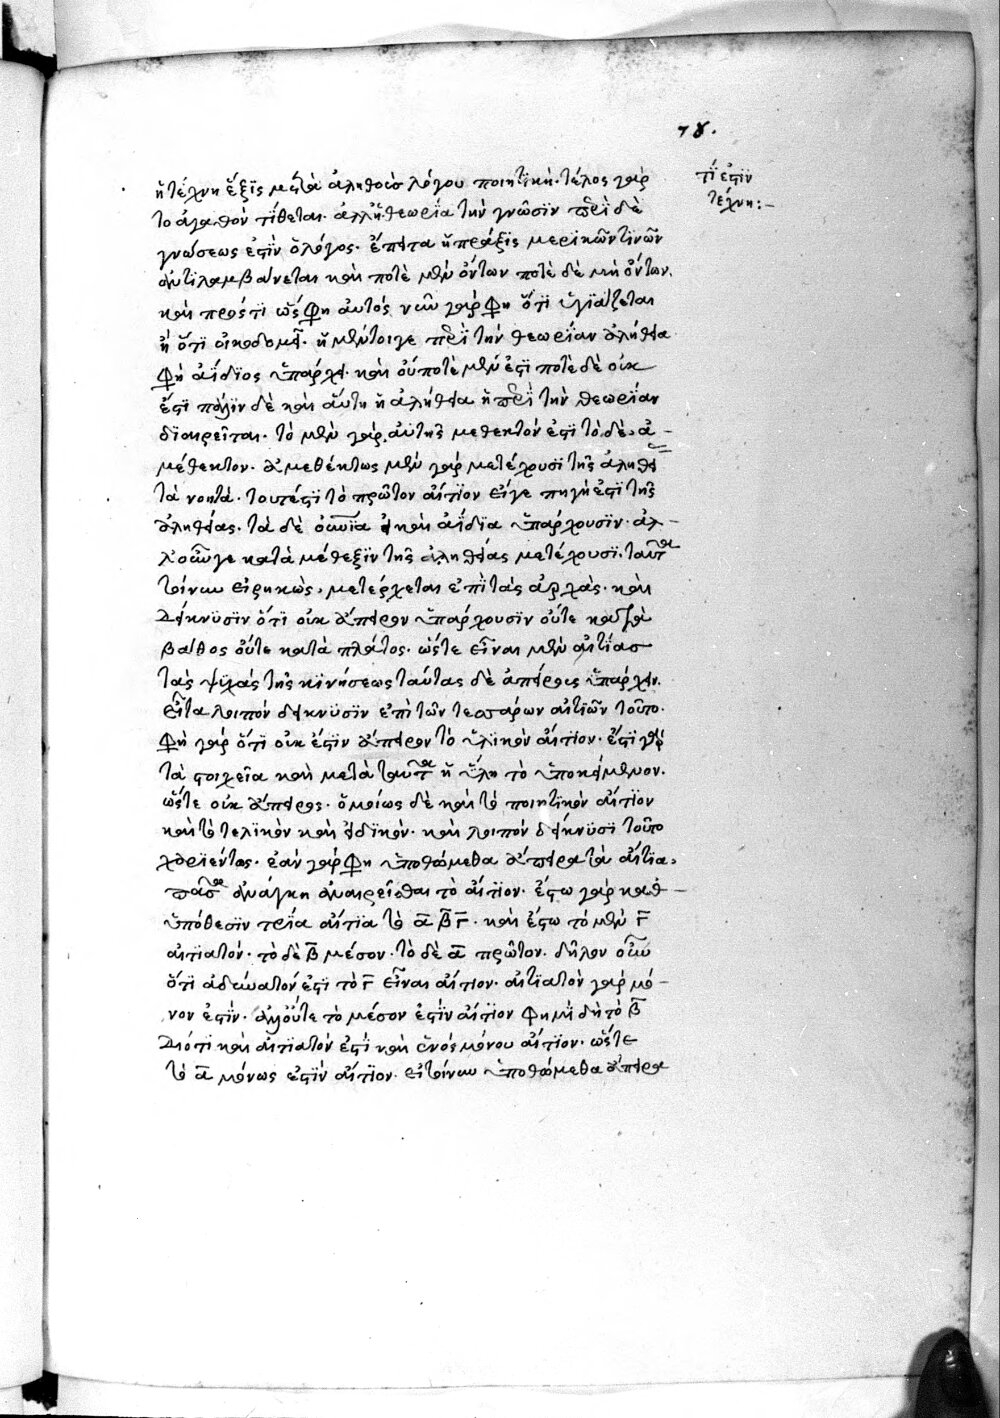 78.
ἡ τέχνη ἕξις μετὰ ἀληθοῦς λόγου ποιητικὴ. τέλος γὰρ
τὸ ἀγαθὸν τίθεται. ἀλλ' ἡ θεωρία τὴν γνῶσιν περὶ δὲ
γνώσεως ἐστὶν ὁ λόγος. ἔπειτα ἡ πράξις μερικῶν τινῶν
ἀντιλαμβάνεται καὶ ποτὲ μὲν ὄντων ποτὲ δὲ μὴ ὄντων.
καὶ πρός τι ὥς φη αὐτός νῦν γάρ φη ὅτι ὑγιάζεται
ἢ ὅτι οἰκοδομεῖ. ἡ μέντοιγε περὶ τὴν θεωρίαν ἀλήθεια
φη ἀΐδιος ὑπάρχει. καὶ οὔποτὲ μὲν ἐστὶ ποτὲ δὲ οὐκ
ἔστι πάλιν δὲ καὶ αὕτη ἡ ἀλήθεια ἡ περὶ τὴν θεωρίαν
διαιρεῖται. τὸ μὲν γὰρ αὐτῆς μεθεκτόν ἐστι τὸ δὲ ἀ-
μέθεκτον. ἀμεθέκτως μὲν γὰρ μετέχουσι τῆς ἀληθεί
τὰ νοητά. τουτέστι τὸ πρῶτον αἴτιον εἴγε πηγή ἐστι τῆς
ἀληθείας. τὰ δὲ οὐράνια καὶ ἀΐδια ὑπάρχουσιν. ἀλ-
λ' οὖν γε κατὰ μέθεξιν τῆς ἀληθείας μετέχουσι. ταῦτα
τοίνυν εἰρηκὼς, μετέρχεται ἐπὶ τὰς ἀρχὰς. καὶ
δείκνυσιν ὅτι οὐκ ἄπειροι ὑπάρχουσιν οὔτε κατὰ
βάθος οὔτε κατὰ πλάτος. ὥστε εἶναι μὲν αἰτίας
τὰς ψυχάς τῆς κινήσεως ταύτας δὲ ἀπείρους ὑπάρχειν.
εἶτα λοιπόν δείκνυσιν ἐπὶ τῶν τεσσάρων αἰτιῶν τοῦτο.
φη γὰρ ὅτι οὐκ ἔστιν ἄπειρον τὸ ὑλικόν αἴτιον. ἔστι γὰρ
τὰ στοιχεῖα καὶ μετὰ ταῦτα ἡ ὕλη τὸ ὑποκείμενον.
ὥστε οὐκ ἄπειρος. ὁμοίως δὲ καὶ τὸ ποιητικόν αἴτιον
καὶ τὸ τελικὸν καὶ εἰδικόν. καὶ λοιπόν δείκνυσι τοῦτο
χαριέντως. ἐάν γάρ φη ὑποθώμεθα ἄπειρα τὰ αἴτια,
πᾶσα ἀνάγκη ἀναιρεῖσθαι τὸ αἴτιον. ἔστω γὰρ καθ' -
ὑπόθεσιν τρία αἴτια τὸ α̅ β̅ γ̅. καὶ ἔστω τὸ μὲν γ̅
αἰτιατόν. τὸ δὲ β̅ μέσον. τὸ δὲ α̅ πρῶτον. δῆλον οὖν
ὅτι ἀδύνατόν ἐστι τὸ γ̅ εἶναι αἴτιον. αἰτιατὸν γὰρ μό-
νον ἐστίν. ἀλλ' οὔτε τὸ μέσον ἐστὶν αἴτιον φημὶ δὴ τὸ β̅
διότι καὶ αἰτιατόν ἐστι καὶ ἑνός μόνου αἴτιον. ὥστε
τὸ α̅ μόνως ἐστὶν αἴτιον. εἰ τοίνυν ὑποθώμεθα ἄπειρα
τί ἐστιν
τέχνη:-